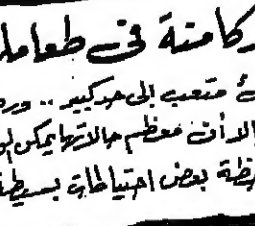 كامنة فى طعامك
متعب إلى حد كبير .. ورد
إلا أن معظم حالاتها يمكن الو
بعض احتياطات بسيطة